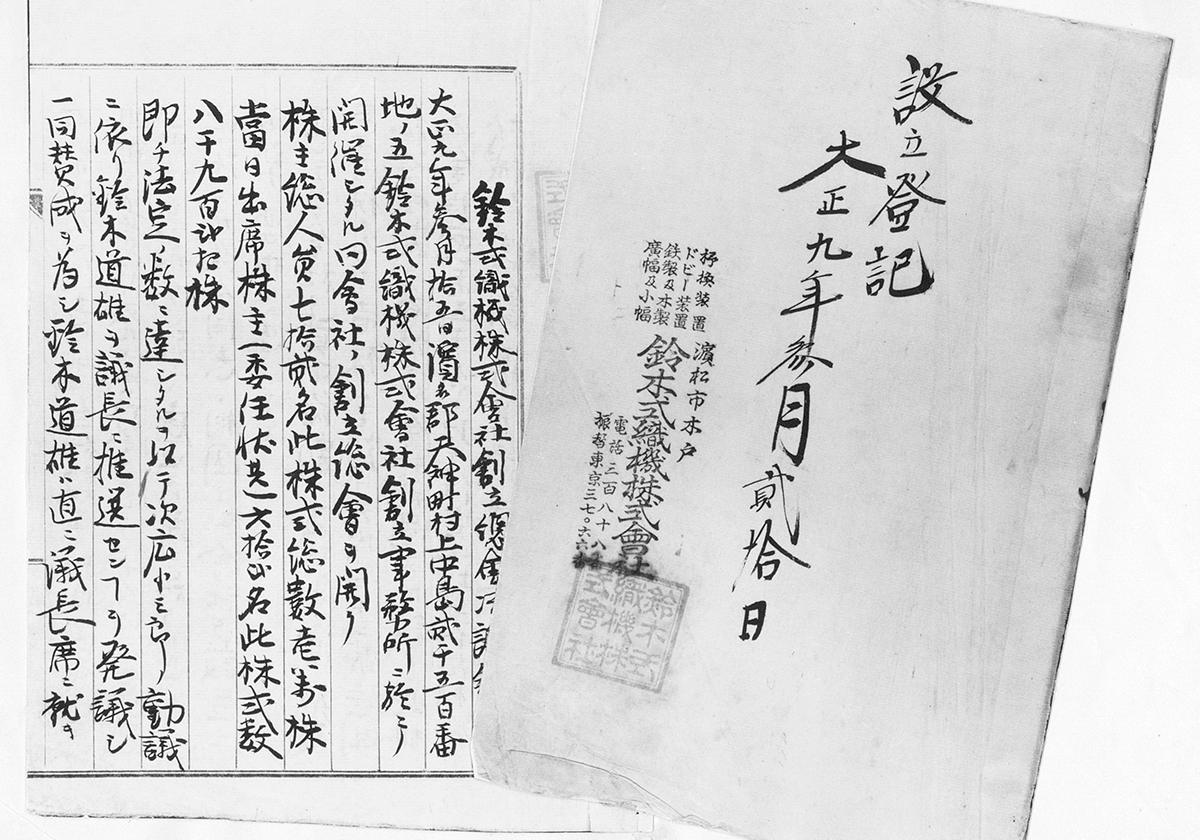 設立登記
大正九年参月貳拾日
杼換装置
ドビー装置
鉄製及木製
廣幅及小幅
濱松市木戸
鈴木式織機株式會社
電話三百八十八
振替東京三七〇六六
鈴木式
織機株
式會社
鈴木式織機株式會社創立總會
大正九年参月拾五日濱名郡天神町村上中島貳千五百番
地ノ五鈴木式織機株式會社創立事務所ニ於テ
開催シタル同會社ノ創立総會ヲ開ク
株主総人員七拾貳名此株式総數壱萬株
當日出席株主委任状共六拾名此株式数
八千九百株
即チ法定ノ数ニ達シタルヲ以テ次広小三郎ノ動議
ニ依リ鈴木道雄ヲ議長ニ推選センコトヲ発議シ
一同賛成ヲ為シ鈴木道雄ハ直ニ議長席ニ就ク